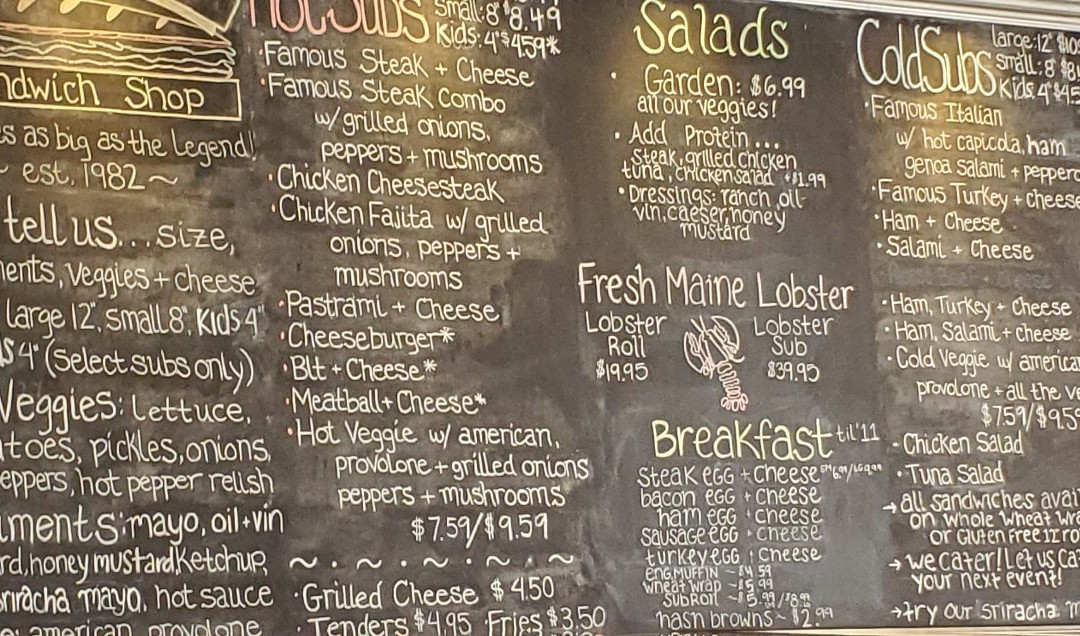 Sandwich Shop
as big as the legend!
est. 1982 ~
tell us...size,
veggies + cheese
large 12", small 8", Kids 4"
4" (select subs only)
Veggies: lettuce,
pickles, onions,
hot pepper relish
mayo, oil+vin
honey mustard Ketchup,
sriracha mayo, hot sauce
american, provolone
Hot Subs
Small: 8" $8.49
Kids: 4" $4.59*
·Famous Steak + Cheese
·Famous Steak Combo
w/ grilled onions,
peppers + mushrooms
·Chicken Cheesesteak
·Chicken Fajita w/ grilled
onions, peppers +
mushrooms
·Pastrami + Cheese
·Cheeseburger*
·Blt + Cheese*
·Meatball + Cheese*
·Hot Veggie w/ american,
provolone + grilled onions
peppers + mushrooms
$7.59/$9.59
~ · ~ · ~ · ~ · ~
·Grilled Cheese $4.50
·Tenders $4.95 ·Fries $3.50
Salads
· Garden: $6.99
all our veggies!
· Add Protein...
Steak, grilled chicken
tuna, chicken salad +$1.99
· Dressings: ranch, oil
vin, caeser, honey
mustard
Fresh Maine Lobster
Lobster
Roll
$19.95
Lobster
Sub
$39.95
Breakfast til '11
Steak egg + cheese
bacon egg + cheese
ham egg + cheese
sausage egg + cheese
turkey egg + cheese
eng. muffin ~ $4.59
wheat wrap ~ $5.99
Sub Roll ~ $5.99/$8.99
hash browns ~ $2.99
Cold Subs
large: 12"
small: 8"
Kids 4"
·Famous Italian
w/ hot capicola, ham
genoa salami +
·Famous Turkey + cheese
·Ham + Cheese
·Salami + Cheese
·Ham, Turkey + Cheese
·Ham, Salami + cheese
·Cold Veggie w/
provolone + all the
$7.59/$9.59
·Chicken Salad
·Tuna Salad
→ all sandwiches
on whole wheat
or Gluten Free 12
→ we cater! Let us
your next event!
→ try our sriracha